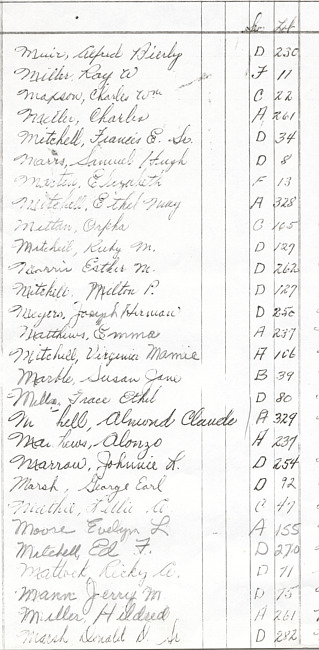 Sec. Lot
Muir, Alfred Bierly D 230
Miller Ray W F 11
Mapson, Charles Wm C 22
Miller, Charles A 261
Mitchell, Francis E. Sr. D 34
Marrs, Samuel Hugh D 8
Martin, Elizabeth F 13
Mitchell, Ethel May A 328
Orpha C 105
Mitchell, Ricky M. D 127
Morris Esther M. D 262
Mitchell Milton P. D 127
Meyers, Joseph Hirman D 250
Matthews, Emma A 237
Mitchell, Virginia Mamie A 106
Marble, Susan Jane B 39
Mills, Grace Ethel D 80
M hell, Almond Claude A 329
Ma hews, Alonzo A 237
Marrow, Johnnie L. D 254
Marsh, George Earl D 92
Lillie A C 47
Moore Evelyn L A 155
Mitchell, Ed F. D 270
Mattock Ricky A. D 71
Mann Jerry M D 75
Miller, Hildred A 261
Marsh Donald D Sr D 282